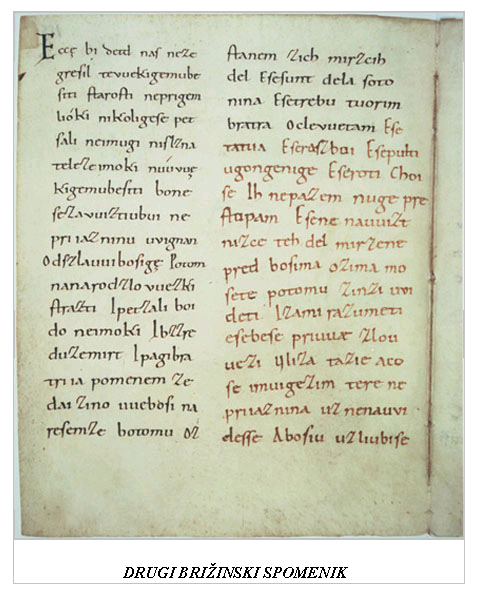 Eccę bi detd naſ neze
greſil tevuekigemube
ſiti ſtaroſti neprigem
lióki nikoligeſe pet
ſali neimugi niſlzna
telezeimoki nuúvuę
kigemubeſiti bone
ſezavuiztiubui ne
priiazninu uvignan
Odſzlauuiboſigę Potom
nanarodzlovuezki
ſtrazti Ipetzali boi
do neimoki Ibzzre
duzemirt Ipagibra
triia pomenem ze
dai zino uueboſi na
reſemze botomu oz
ſtanem zich mirzcih
del Eſeſunt dela ſoto
nina Eſetrebu tuorim
bratra Oclevuetam Eſe
tatua Eſerazboi Eſepulti
ugongenige Eſeroti Choi
ſe Ih nepazem nuge pre
ſtopam Eſene nauuizt
nizce teh del mirzene
pred boſima ozima mo
ſete potomu zinzi uvi
deti Izami razumeti
eſebeſe priuuæ zlou
uezi Uliza tazie aco
ſe imuigezim tere ne
priiaznina uznenauvi
deſſe Aboſiu uzliubiſe
DRUGI BRIŽINSKI SPOMENIK